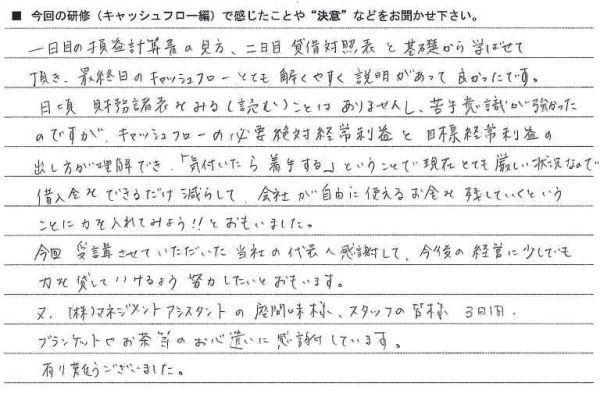 ■ 今回の研修（キャッシュフロー編）で感じたことや“決意”などをお聞かせ下さい。
一日目の損益計算書の見方、二日目 貸借対照表と基礎から学ばせて
頂き、最終日のキャッシュフローとても解くやすく説明があって良かったです。
日頃 財務諸表をみる(読む)ことはありませんし、苦手意識が強かった
のですが、キャッシュフローの必要絶対経常利益と目標経常利益の
出し方が理解でき、「気付いたら着手する」ということで現在とても厳しい状況なので
借入金をできるだけ減らして、会社が自由に使えるお金を残していくという
ことに力を入れてみよう!!とおもいました。
今回 受講させていただいた当社の代表へ感謝して、今後の経営に少しでも
力を貸していけるよう努力したいとおもいます。
又、(株)マネジメントアシスタントの 様、スタッフの皆様 3日間、
ブランケットやお茶等のお心遣いに感謝しています。
有り難うございました。